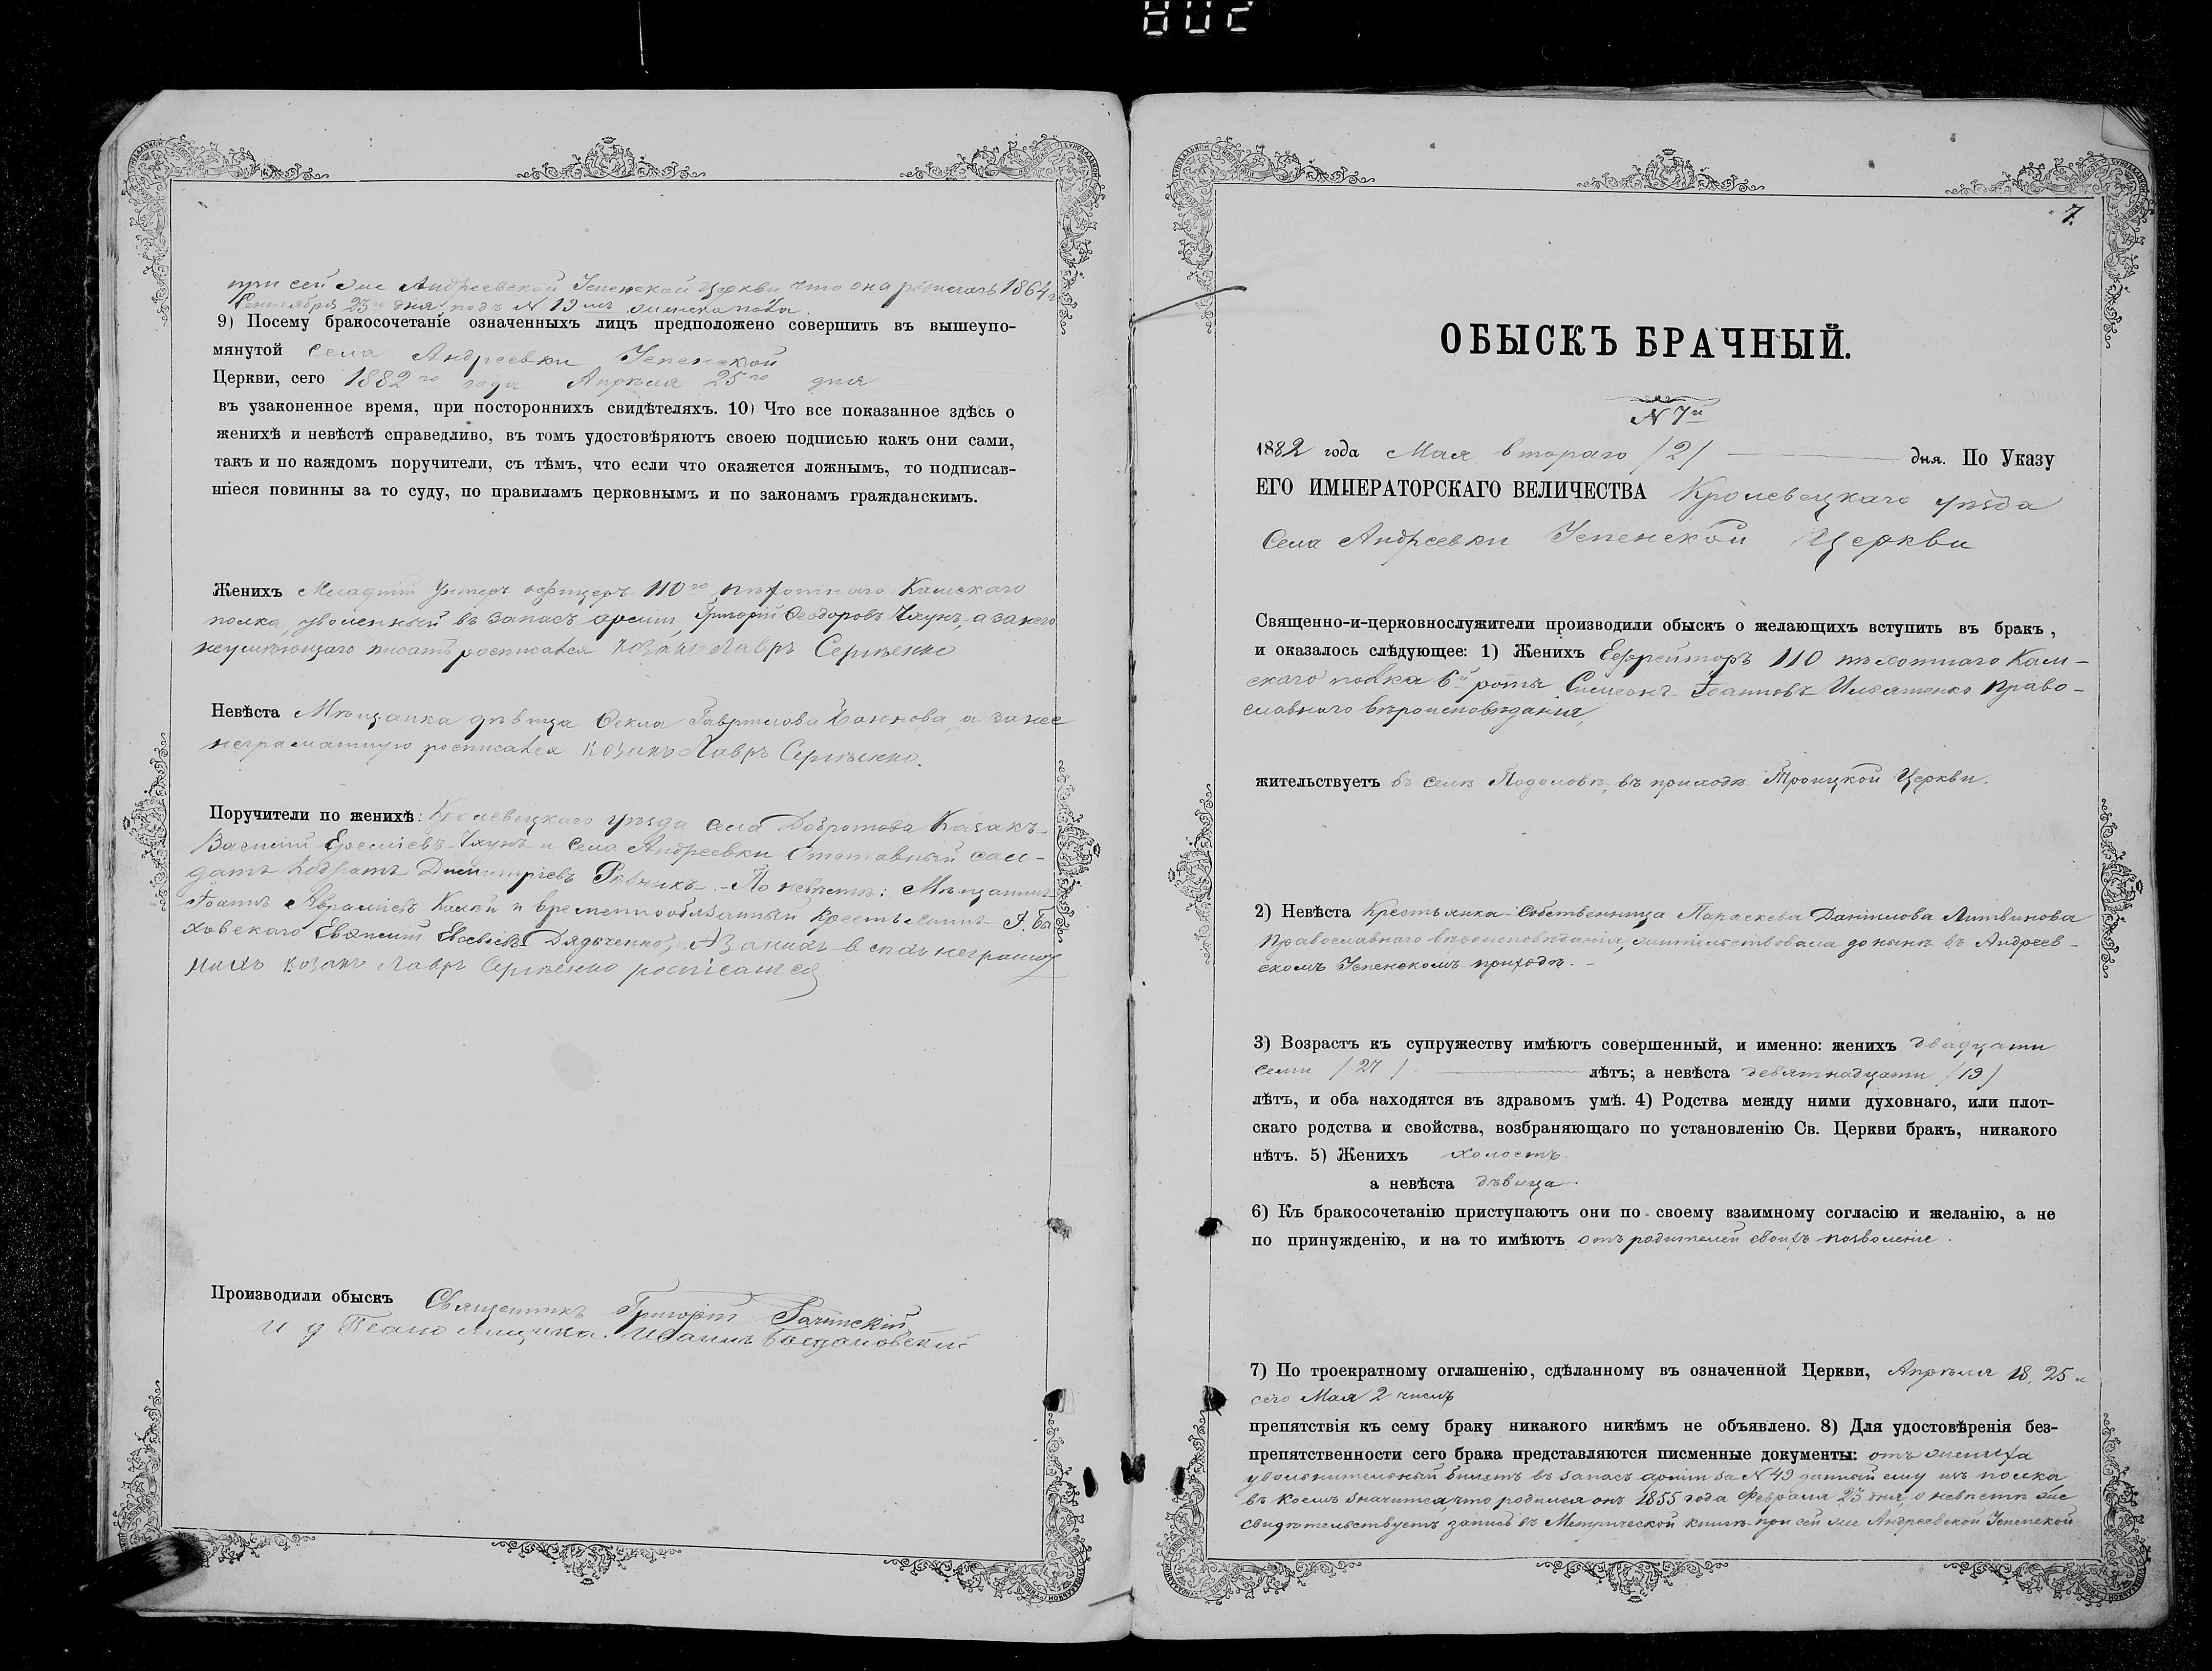 при сей же Андреевской Успенской церкви что она родилась 1864 г.
Сентября 23го дня подъ N 19 мъ женска пола.
9) Посему бракосочетаніе означенныхъ лицъ предположено совершить въ вышеупо-
мянутой Села Андреевки Успенской
Церкви, сего 1882го года Апрѣля 25го дня
въ узаконенное время, при постороннихъ свидѣтеляхъ. 10) Что все показанное здѣсь о
женихѣ и невѣстѣ справедливо, въ томъ удостовѣряютъ своею подписью какъ они сами,
такъ и по каждомъ поручители, съ тѣмъ, что если что окажется ложнымъ, то подписав-
шіеся повинны за то суду, по правиламъ церковнымъ и по законамъ гражданскимъ.
Женихъ Младшій Унтеръ офицеръ 110го пѣхотнаго Камскаго
полка, уволенный въ запасъ арміи, Григорій Ѳеодоровъ Чхунъ, а за него
неумѣющаго писать росписался козакъ Лавръ Сергѣенко
Невѣста Мѣщанка дѣвица Ѳекла Гаврилова, а за нее
неграматную росписался козакъ Лавръ Сергѣенко.
Поручители по женихѣ: Кролевецкаго уѣзда села Добротова Казакъ
Василій Еремѣевъ Чхунъ и Села Андреевки Отставный сол-
датъ Кодратъ Димитріевъ Рѣзникъ. - По невѣстѣ: Мѣщанинъ
Іоаннъ Аврамьевъ и временнообязанный крестьянинъ
Евсевьевъ Дядьченко, А за нихъ всѣхъ неграмот
ныхъ козакъ Лавръ Сергѣенко росписался
Производили обыскъ Священникъ Григорій
и д Псаломщика. Иванъ Богдановскій
7.
ОБЫСКЪ БРАЧНЫЙ.
N 7й
1882 года Мая втораго /2/ дня. По Указу
ЕГО ИМПЕРАТОРСКАГО ВЕЛИЧЕСТВА Кролевецкаго уѣзда
Села Андреевки Успенской Церкви
Священно-и-церковнослужители производили обыскъ о желающихъ вступить въ бракъ,
и оказалось слѣдующее: 1) Женихъ Ефрейторъ 110 пѣхотнаго Кам-
скаго полка 6й роты Симеонъ Іоанновъ Ильяшенко Право-
славнаго вѣроисповѣданія,
жительствуетъ въ селѣ Подоловѣ, въ приходѣ Троицкой Церкви.
2) Невѣста Крестьянка-собственница Параскева Даніилова Литвинова
Православнаго вѣроисповѣданія, жительствовала до нынѣ въ Андреев-
скомъ Успенскомъ приходѣ. -
3) Возрастъ къ супружеству имѣютъ совершенный, и именно: женихъ двадцати
семи /27/ лѣтъ; а невѣста девятнадцати /19/
лѣтъ, и оба находятся въ здравомъ умѣ. 4) Родства между ними духовнаго, или плот-
скаго родства и свойства, возбраняющаго по установленію Св. Церкви бракъ, никакого
нѣтъ. 5) Женихъ холостъ.
а невѣста дѣвица.
6) Къ бракосочетанію приступаютъ они по своему взаимному согласію и желанію, а не
по принужденію, и на то имѣютъ отъ родителей своихъ позволеніе.
7) По троекратному оглашенію, сдѣланному въ означенной Церкви, Апрѣля 18, 25 и
сего Мая 2 числъ
препятствія къ сему браку никакого никѣмъ не объявлено. 8) Для удостовѣренія без-
препятственности сего брака представляются писменные документы: отъ жениха
увольнительный билетъ въ запасъ арміи за N 49 данный ему изъ полка
въ коемъ значится, что родился онъ 1855 года Февраля 23 дня, о невѣстѣ же
свидѣтельствуетъ запись въ Метрической книгѣ при сей же Андреевской Успенской